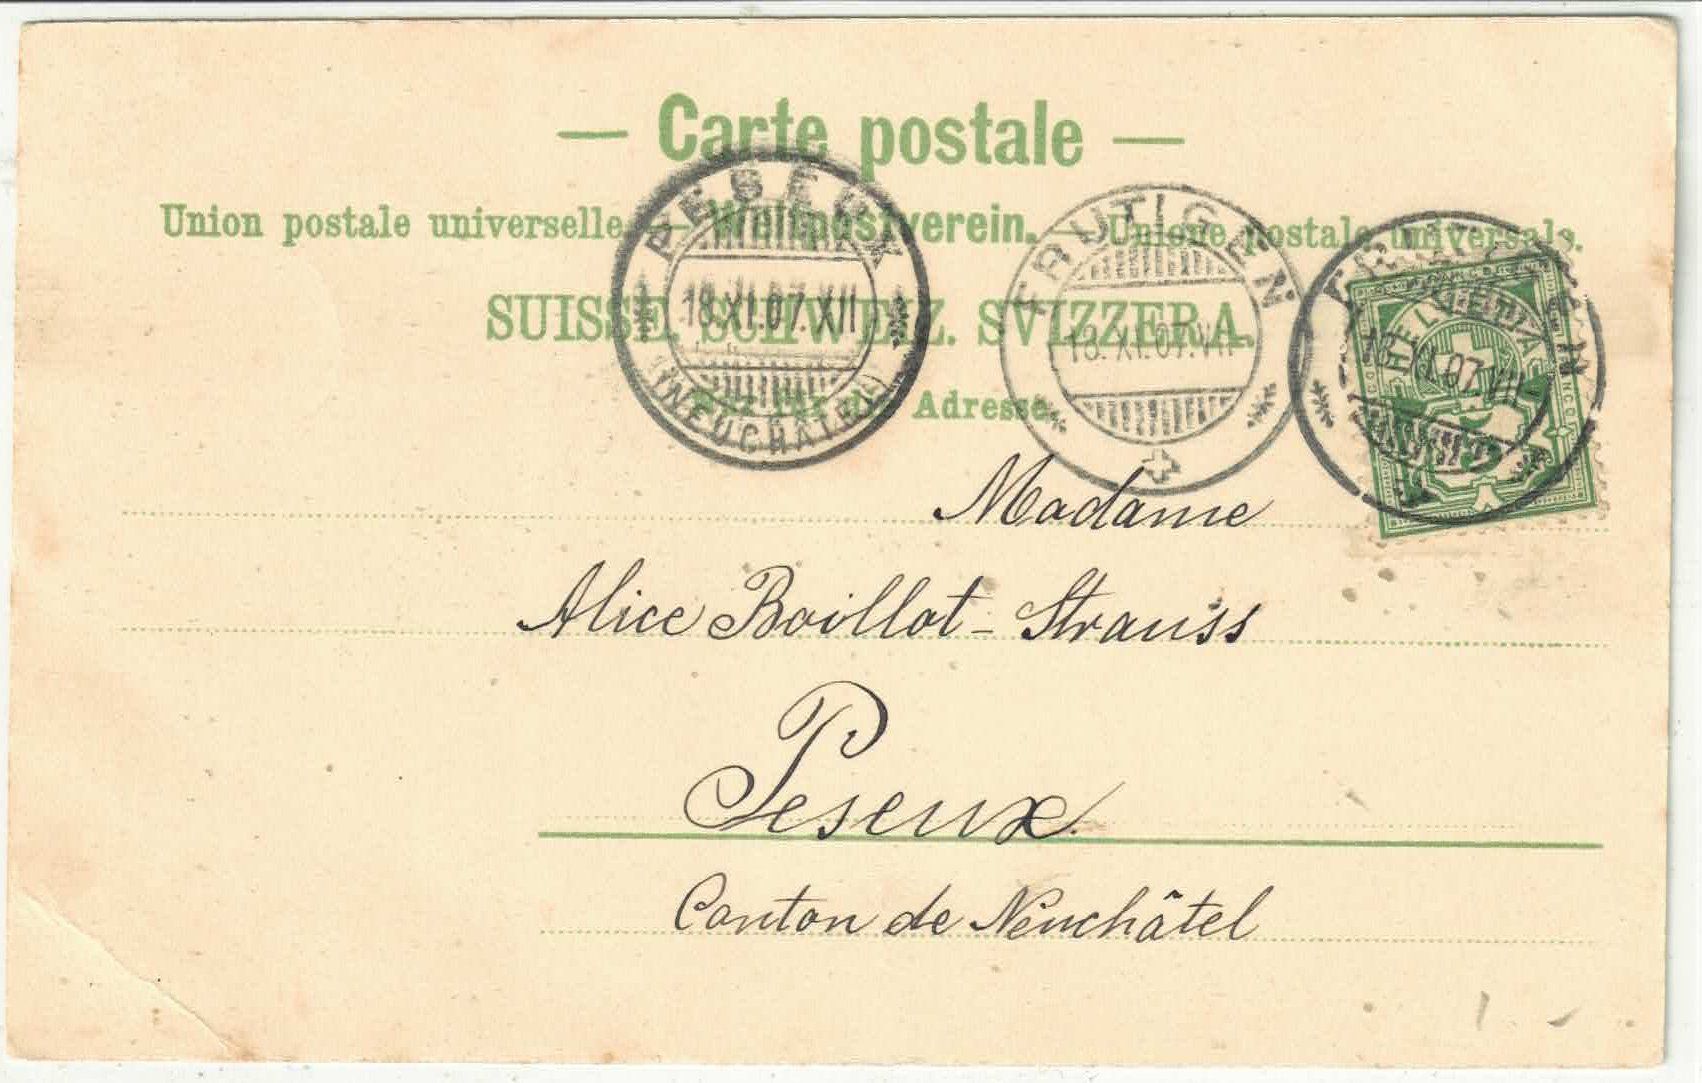 — Carte postale —
Union postale universelle. — Weltpostverein. — Unione postale universale.
SUISSE. SCHWEIZ. SVIZZERA.
Nur für die Adresse.
PESEUX
18.XI.07.XII
(NEUCHÂTEL)
FRUTIGEN
18.XI.07.VII
FRUTIGEN
18.XI.07.VII
HELVETIA
5
Madame
Alice Boillot-Strauss
Peseux.
Canton de Neuchâtel